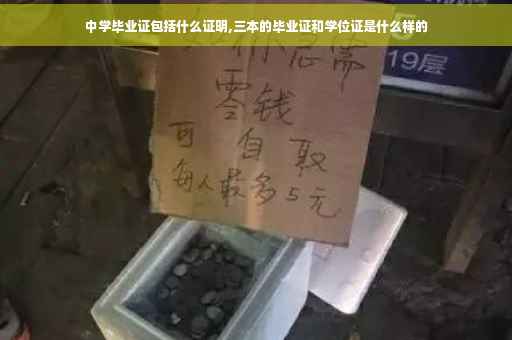 中学毕业证包括什么证明,三本的毕业证和学位证是什么样的
如你急需
19层
零钱
可自取
每人最多5元